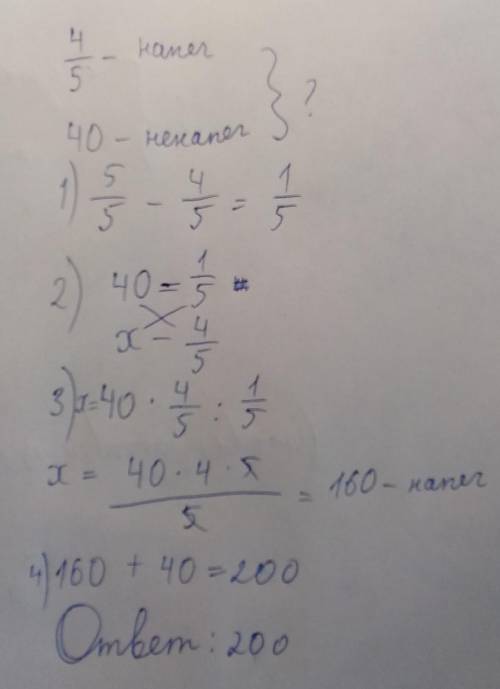 4/5 - напег
40 - ненапег } ?
1) 5/5 - 4/5 = 1/5
2) 40 - 1/5
x - 4/5
3) x = 40 · 4/5 : 1/5
x = 40 · 4 · 5 / 5 = 160 - напег
4) 160 + 40 = 200
Ответ: 200